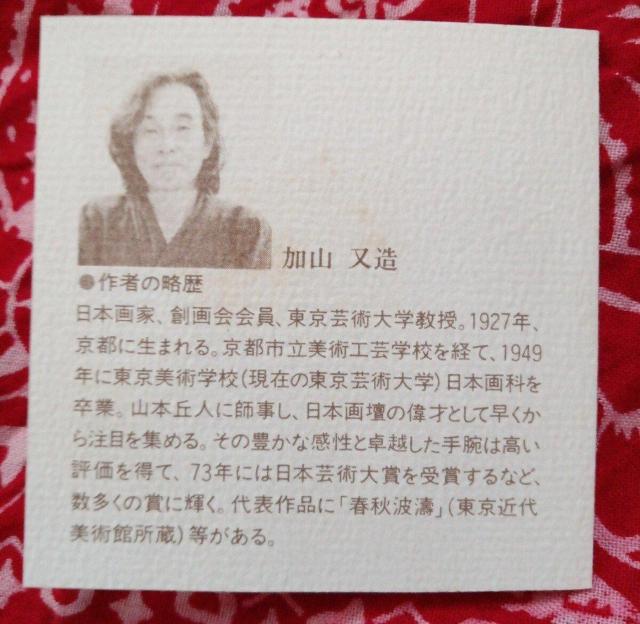 加山 又造
●作者の略歴
日本画家、創画会会員、東京芸術大学教授。1927年、
京都に生まれる。京都市立美術工芸学校を経て、1949
年に東京美術学校(現在の東京芸術大学)日本画科を
卒業。山本丘人に師事し、日本画壇の偉才として早くか
ら注目を集める。その豊かな感性と卓越した手腕は高い
評価を得て、73年には日本芸術大賞を受賞するなど、
数多くの賞に輝く。代表作品に「春秋波濤」(東京近代
美術館所蔵)等がある。